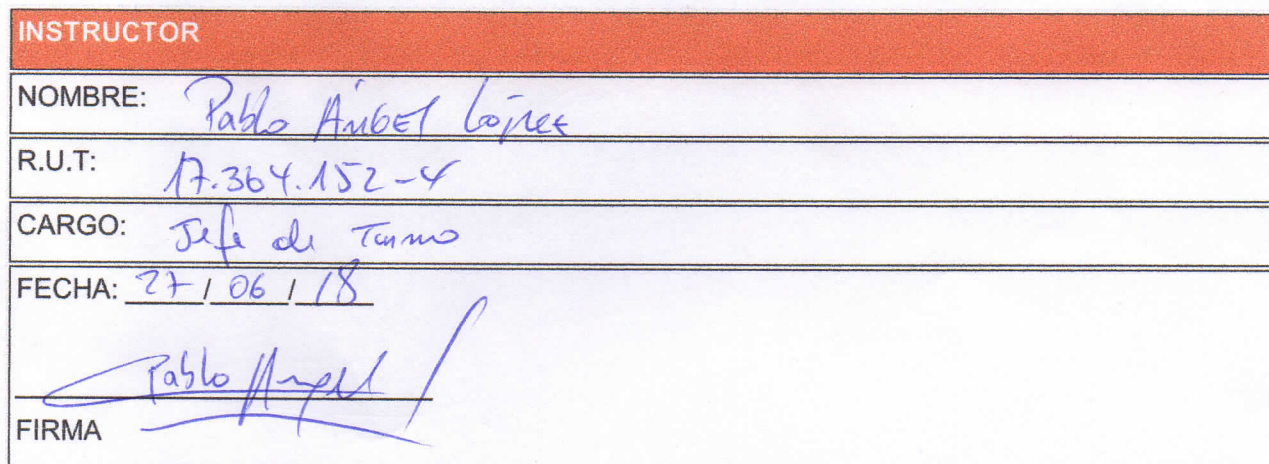 INSTRUCTOR
NOMBRE: Pablo Ángel López
R.U.T: 17.364.152-4
CARGO: Jefe de Turno
FECHA: 27 / 06 / 18
Pablo Angel
FIRMA